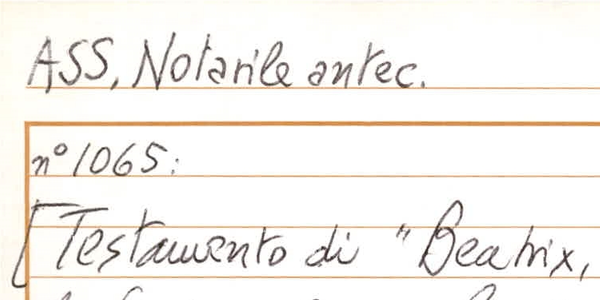 ASS, Notarile antec.
n° 1065:
[Testamento di "Beatrix,